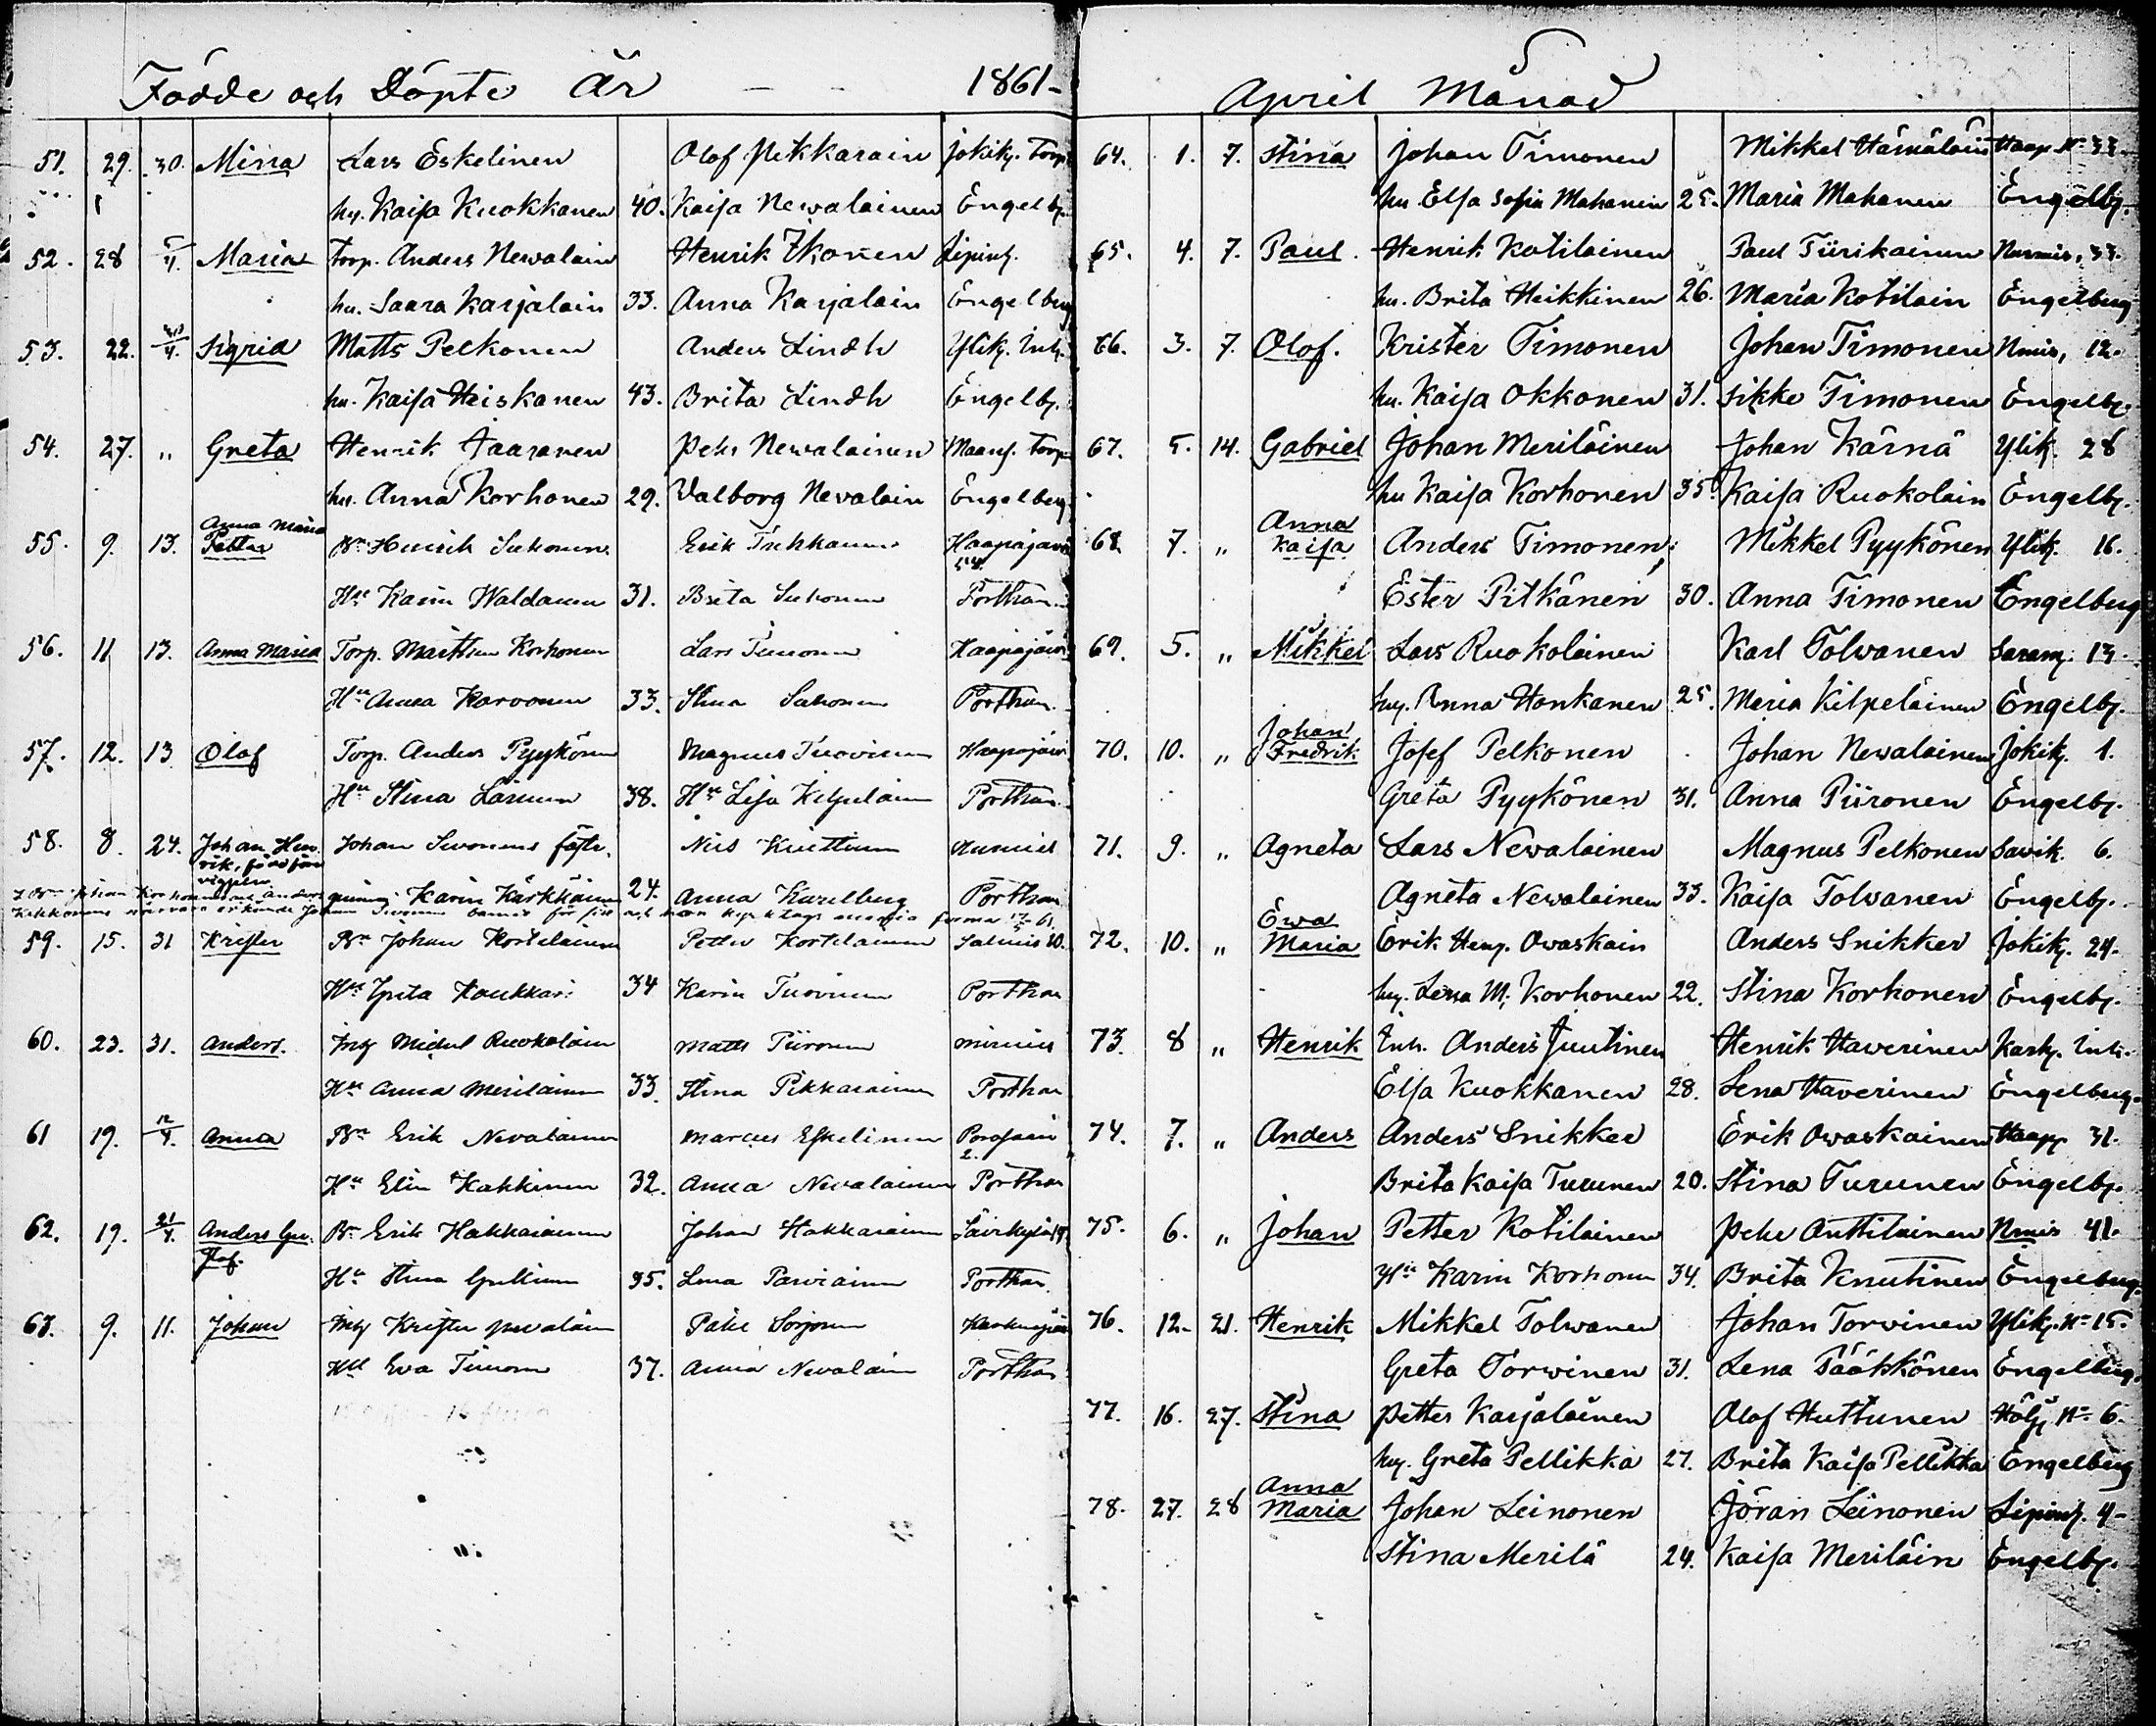 Födde och Döpte År - - 1861-
51. 29. 30. Mina Lars Eskelinen Olof Pekkarain Jokikj. Torp.
hu. Kaisa Kuokkanen 40. Kaisa Newalainen Engelbg.
52. 28 5/4. Maria Torp. Anders Newalain Henrik Ikonen Lipinj.
hu. Saara Karjalain 33. Anna Karjalain Engelberg
53. 22. /4. Sigrid Matts Pelkonen Anders Lindh Ylikj. Inh.
hu. Kaisa Heiskanen 43. Brita Lindh Engelbg.
54. 27. „ Greta Henrik Jaaranen Pehr Newalainen Maans. Torp.
hu. Anna Korhonen 29. Valborg Nevalain Engelberg
Anna Maria
55. 9. 13. Petter Bn Henrik Erik Haapajärvi
54.
Hu Karin Waldanen 31. Brita Porthan
56. 11 13. Anna Maria Torp. Korhonen Lars Timonen Haapajärvi
Hu Anna Karvonen 33. Stina Porthan.
57. 12. 13 Olof Torp. Anders Pyykönen Magnus Tuovinen Haapajärvi
Hu Stina 38. Hu Lisa Kilpelain Porthan
58. 8. 24. Johan Hen- Johan Sivonens fästr. Nils Kuittinen Nurmis
rik, född före
vigseln
qvinna Karin Kärkkäinen 24. Anna Karelberg Porthan
59. 15. 31 Krister Bn Johan Kortelainen Petter Kortelainen Salmis 10.
Hu Greta Koukkari 34 Karin Tuovinen Porthan
60. 23. 31. Anders. Inhj Michel Ruokolain Matts Piironen
Hu Anna Merilainen 33. Stina Pikkarainen Porthan
61 19. 12/4. Anna Bn Erik Nevalainen Marcus Eskelinen
2.
Hu Elin Kakkinen 32. Anna Nevalainen Porthan
62. 19. 21/4. Anders Gu- Bn Erik Hakkarainen Johan Hakkarainen
staf.
Hu Stina 35. Lena Parviainen Porthan.
63. 9. 11. Johan Inhj Krister Sorjonen
Hu Eva Timonen 37. Anna Nevalain Porthan
April Månad
64. 1. 7. Stina Johan Timonen Mikkel Hämäläin Haap. No 33.
hu Elsa Sofia Mahanen 25. Maria Mahanen Engelbg.
65. 4. 7. Paul. Henrik Kotilainen Paul Tiirikainen Nurmis, 33.
hu. Brita Heikkinen 26. Maria Kotilain Engelberg
66. 3. 7. Olof. Krister Timonen Johan Timonen Nmis, 12.
hu. Kaisa Okkonen 31. Sikke Timonen Engelbg.
67. 5. 14. Gabriel Johan Meriläinen Johan Kärnä Ylikj. 28
hu Kaisa Korhonen 35. Kaisa Ruokolain Engelbg.
Anna
68. 7. „ Kaisa Anders Timonen, Mikkel Pyykönen Ylikj. 16.
Ester Pitkänen 30. Anna Timonen Engelberg
69. 5. „ Mikkel Lars Ruokolainen Karl Tolvanen Saramj. 13.
huj. Anna Honkanen 25. Maria Kilpeläinen Engelbg.
Johan
70. 10. „ Fredrik Josef Pelkonen Johan Newalainen Jokikj. 1.
Greta Pyykönen 31. Anna Piironen Engelbg.
71. 9. „ Agneta Lars Newalainen Magnus Pelkonen Savik. 6.
Agneta Newalainen 33. Kaisa Tolwanen Engelbg.
Ewa
72. 10. „ Maria Erik Henr. Owaskain Anders Snikker Jokikj. 24.
huj. Lena M. Korhonen 22. Stina Korhonen Engelbg.
73. 8 „ Henrik Inh. Anders Juutinen Henrik Haverinen Karhj. Inh.
Elsa Kuokkanen 28. Lena Haverinen Engelberg.
74. 7. „ Anders Anders Snikker Erik Owaskainen Haapj. 31.
Brita Kaisa Turunen 20. Stina Turunen Engelbg.
75. 6. „ Johan Petter Kotilainen Pehr Anttilainen Nmis 41.
Hu Karin Korhonen 34. Brita Knutinen Engelberg.
76. 12. 21. Henrik Mikkel Tolwanen Johan Torvinen Ylikj. No 15.
Greta Torwinen 31. Lena Pääkkönen Engelberg.
77. 16. 27. Stina Petter Karjalainen Olof Huttunen Höljj. No 6.
huj. Greta Pellikka 27. Brita Kaisa Pellikka Engelberg
Anna
78. 27. 28 Maria Johan Leinonen Jöran Leinonen Lipinj. 4-
Stina Merilä 24. Kaisa Meriläin Engelbg.